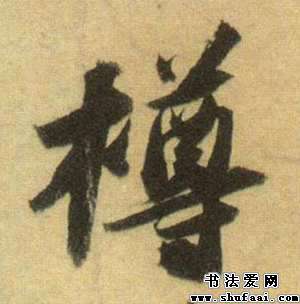 樽
书法爱网
www.shufaai.com